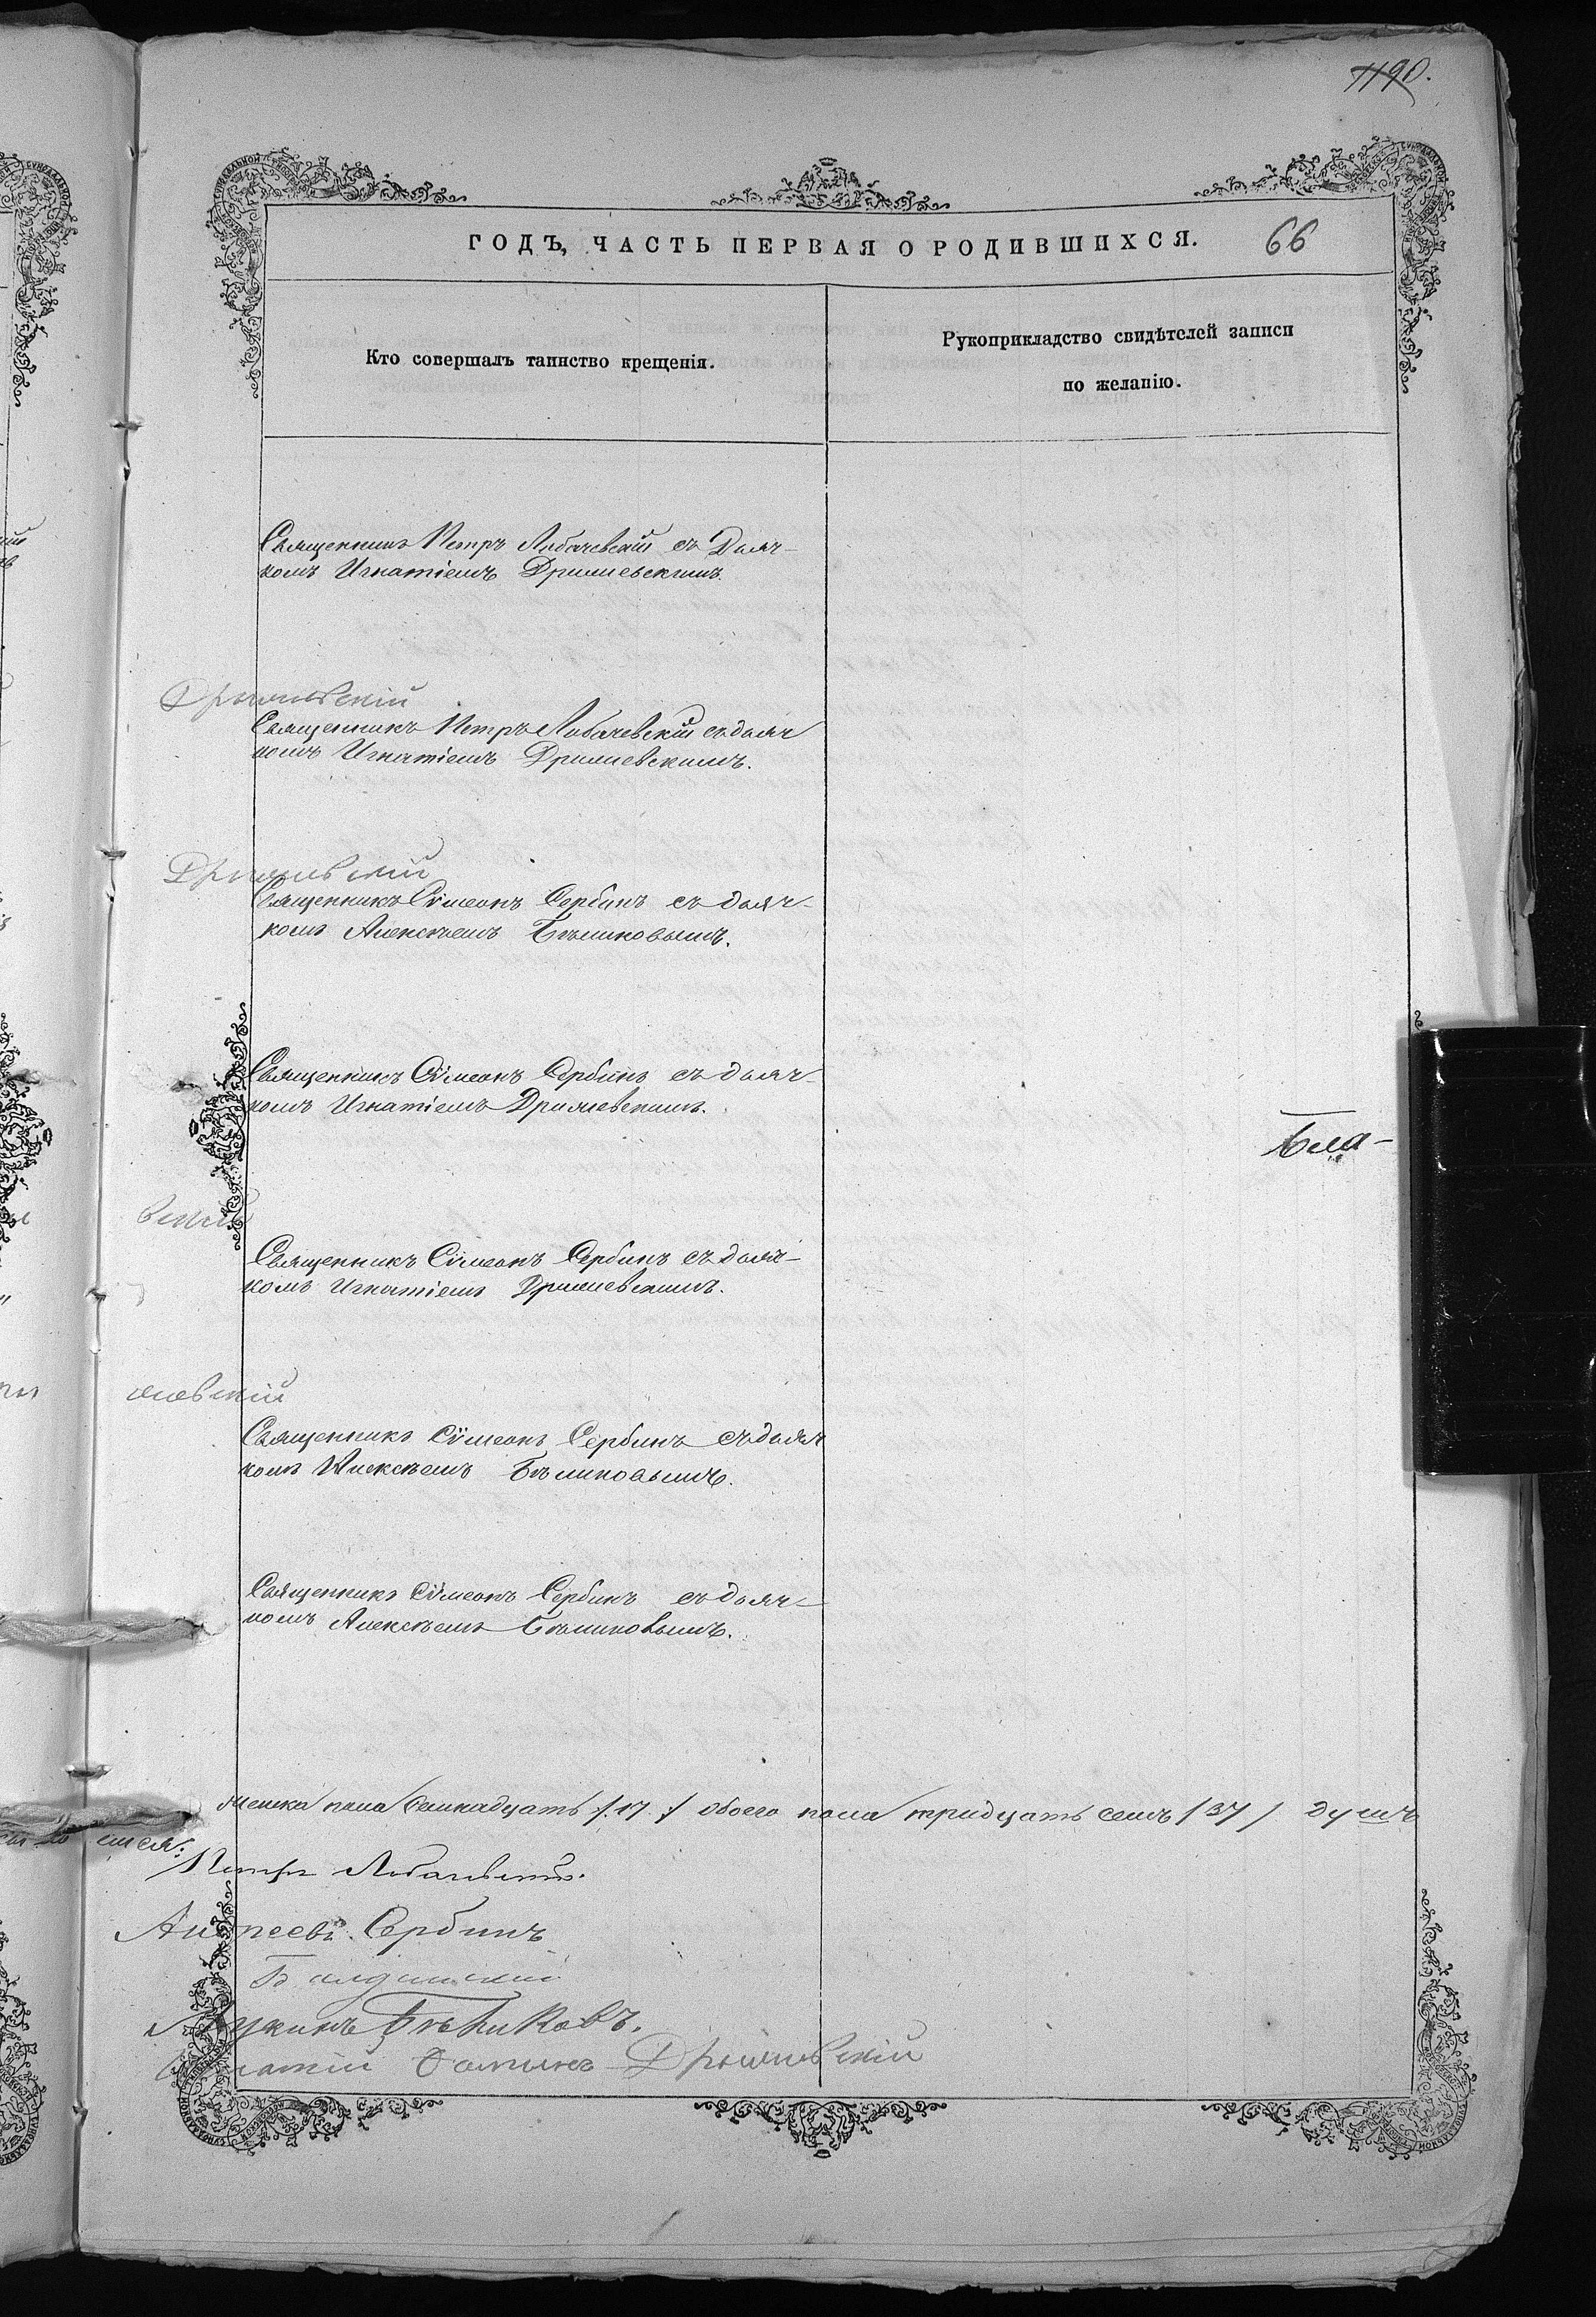 1190.
ГОДЪ, ЧАСТЬ ПЕРВАЯ О РОДИВШИХСЯ. 66
Кто совершалъ таинство крещенія.
Рукоприкладство свидѣтелей записи
по желанію.
Священникъ Петръ Лобачевскій съ Дьяч-
комъ Игнатіемъ Дримлевскимъ.
Дрымлевскій
Священникъ Петръ Лобачевскій съ дьяч
комъ Игнатіемъ Дримлевскимъ.
Дрымлевскій
Священникъ Сѵмеонъ Сербинъ съ дьяч-
комъ Алексѣемъ Бѣликовымъ.
Священникъ Сѵмеонъ Сербинъ съ дьяч-
комъ Игнатіемъ Дримлевскимъ.
Бла-
вскій
Священникъ Сѵмеонъ Сербинъ съ дьяч-
комъ Игнатіемъ Дримлевскимъ.
левскій
Священникъ Сѵмеонъ Сербинъ съ дьяч
комъ Алексѣемъ Бѣликовымъ.
Священникъ Сѵмеонъ Сербинъ съ дьяч-
комъ Алексѣемъ Бѣликовымъ.
женска пола Семнадцать /.17./ обоего пола тридцать семь /37/ душъ
Петръ Лобачевскій.
Андреевъ Сербинъ
Лукинъ Бѣликовъ.
Дрымлевскій